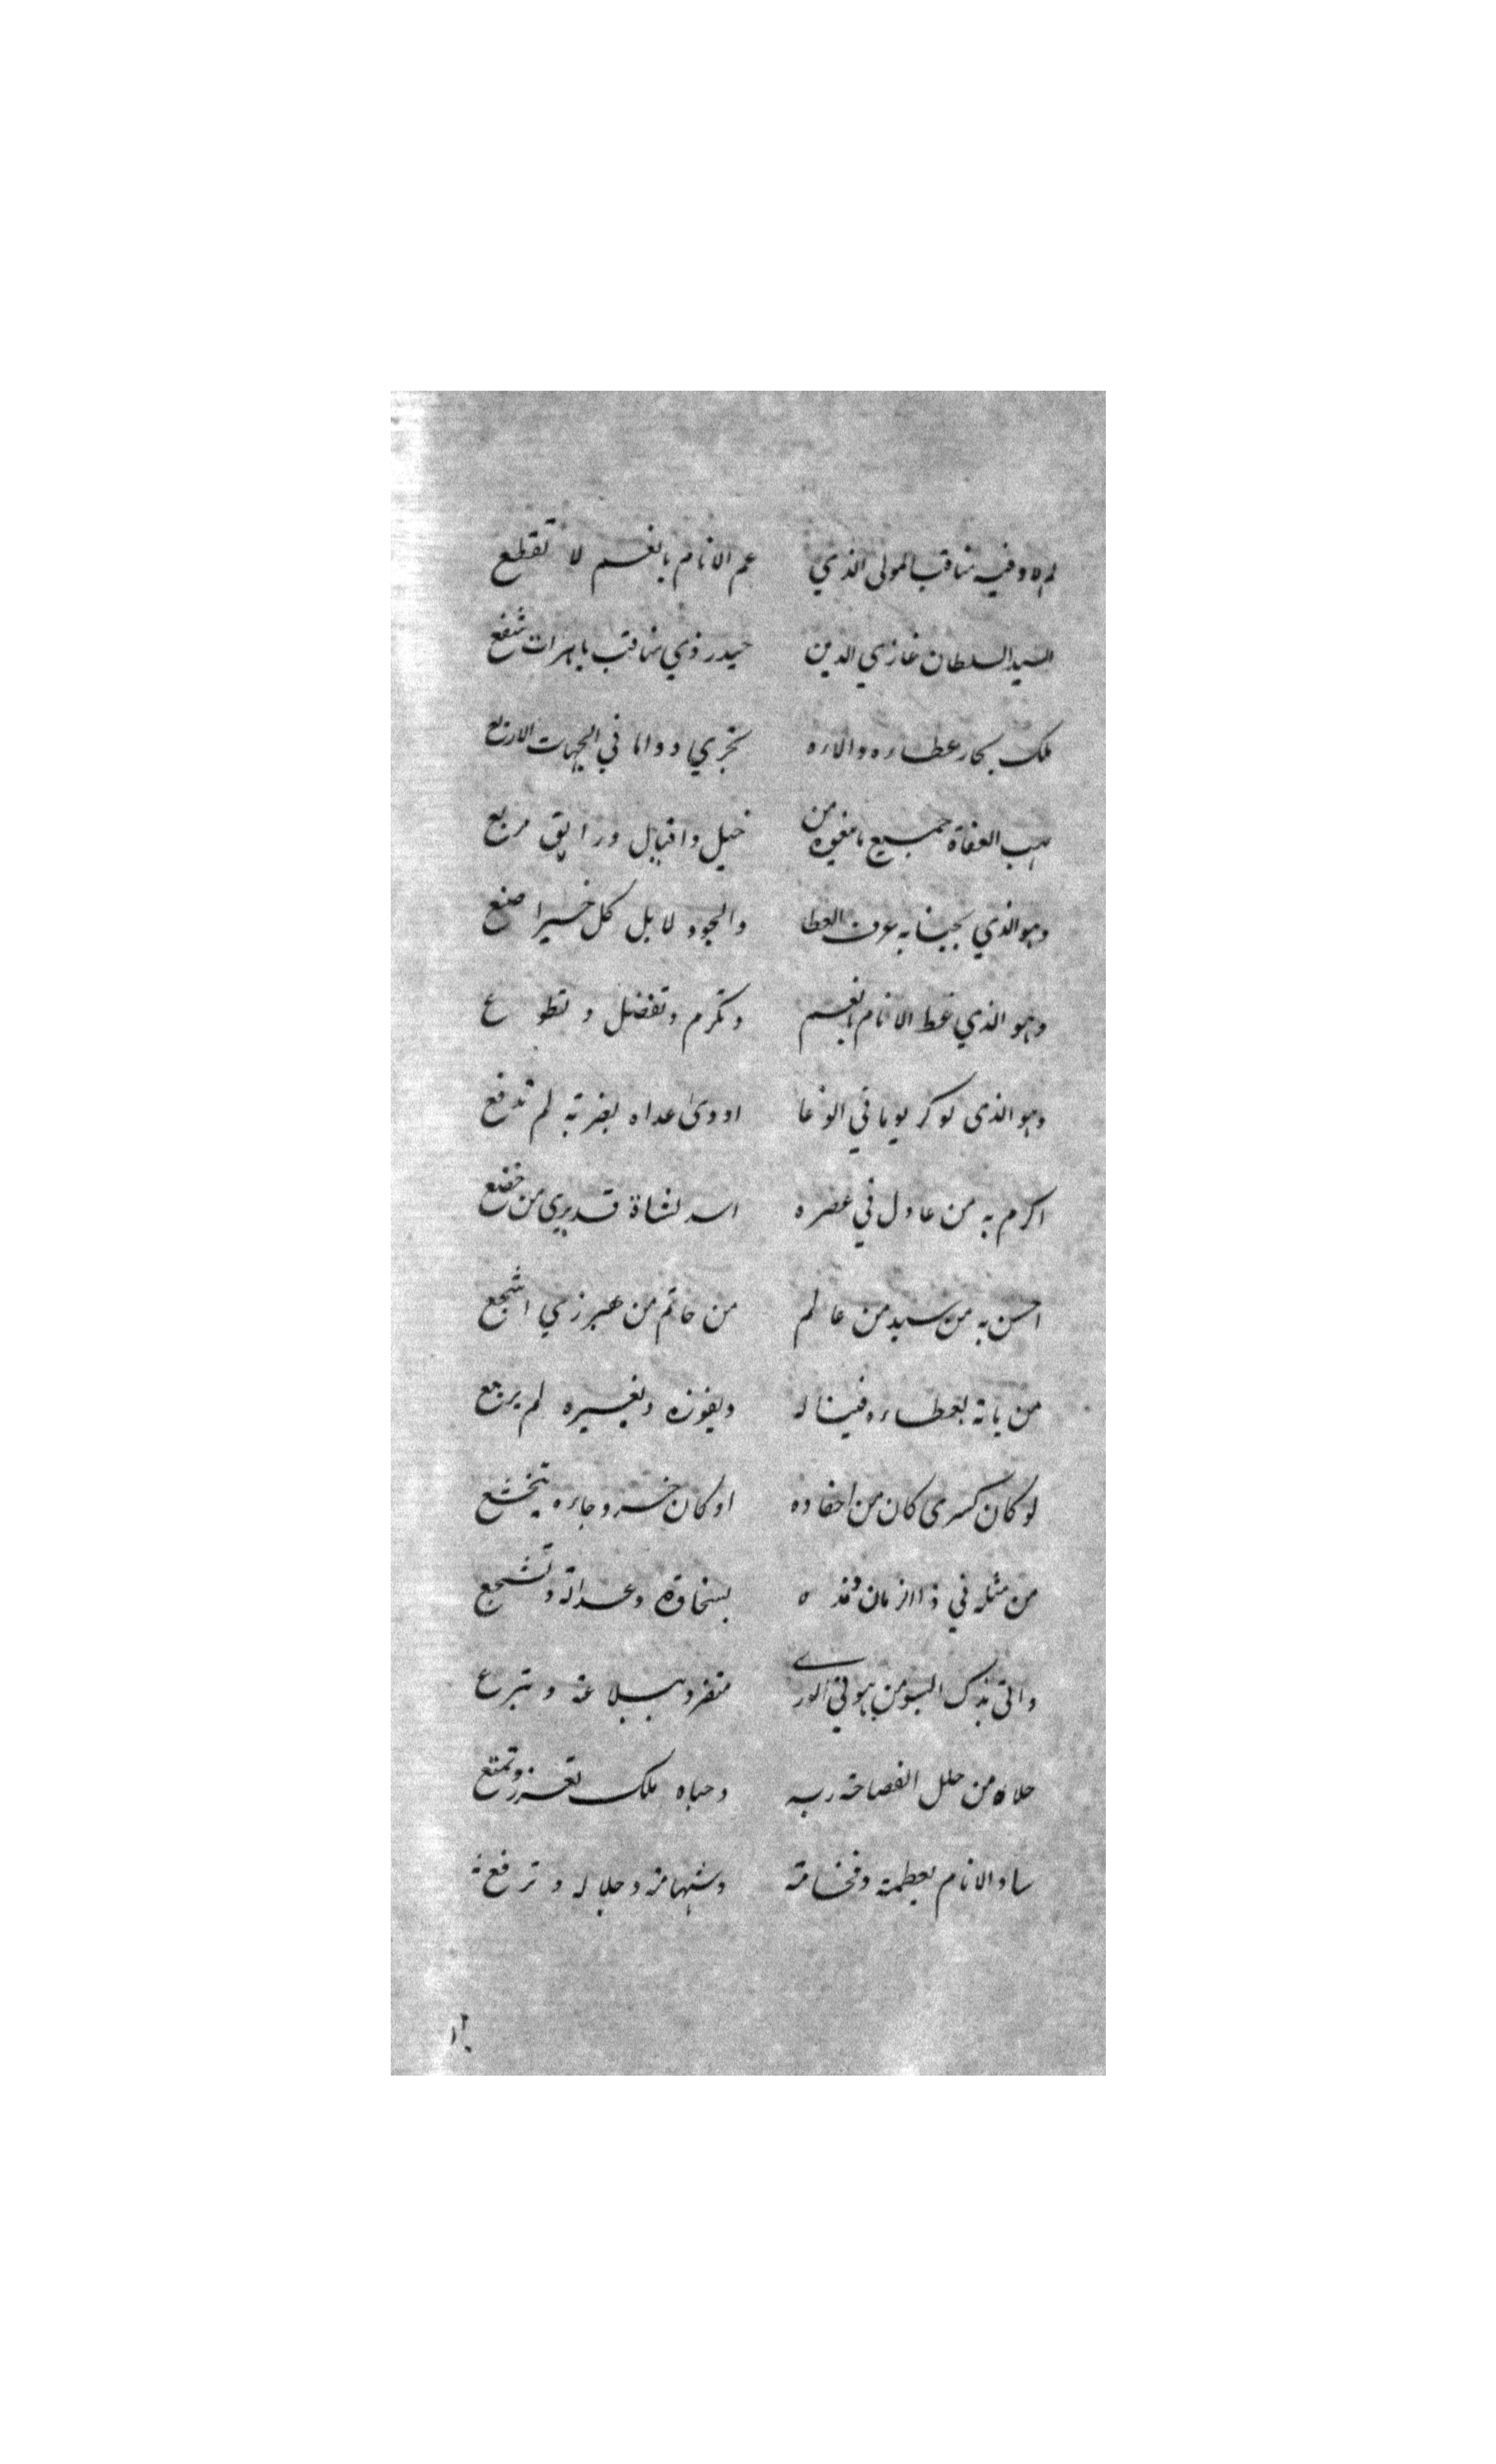 لم لا وفيه مناقب المولى الذي عم الانام بانعم لا تقطع
السيد السلطان غازي الدين حيدر ذي مناقب باهرات شفع
ملك بحار عطاءه والاءه تجري دواما في الجهات الاربع
يهب العفاة جميع ما من خيل وافيال ورايق مربع
وهو الذي بجنابه عرف العطا والجود لا بل كل خير اصنع
وهو الذي غط الانام بانعم وتكرم وتفضل وتطوع
وهو الذى لو كر يوما في الوغا اودى عداه بضربة لم تدفع
اكرم به من عادل في عصره اسد لشاة قد يرى من خضع
احسن به من سيد من عالم من حاتم من هبرزي اشجع
من ياته بعطاءه فيناله ويفوزه وبغيره لم يرجع
لو كان كسرى كان من احفاده او كان خسرو جاءه يتخشع
من مثله في ذا الزمان بسخاوة وعدالة وتشجع
واتى بذك اليوم من هو في الورى متفرد ببلاغة وتبرع
حلاه من حلل الفصاحة ربه وحباه ملك تعزز وتمتع
ساد الانام بعظمة وفخامة وشهامة وجلالة وترفع